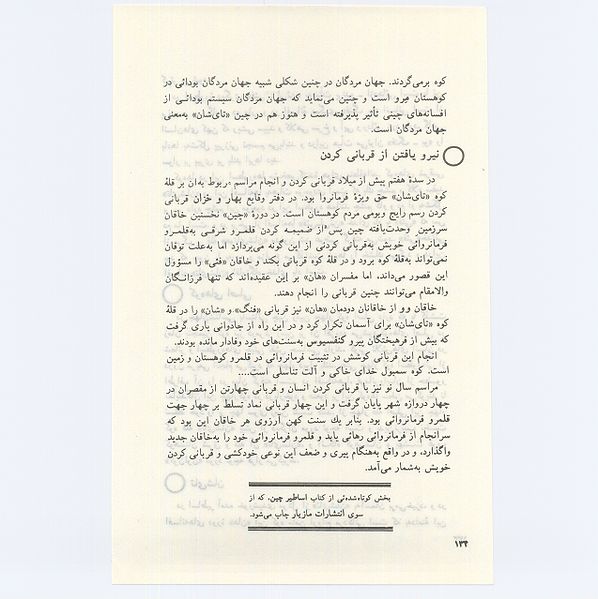 کوه برمی‌گردند. جهان مردگان در چنین شکلی شبیه جهان مردگان بودائی در
کوهستان مِرو است و چنین می‌نماید که جهان مردگان سیستم بودائی از
افسانه‌های چینی تأثیر پذیرفته است و هنوز هم در چین «تای‌شان» به‌معنی
جهان مردگان است.
نیرو یافتن از قربانی کردن
در سدهٔ هفتم پیش از میلاد قربانی کردن و انجام مراسم مربوط به‌آن بر قلهٔ
کوه «تای‌شان» حق ویژهٔ فرمانروا بود. در دفتر وقایع بهار و خزان قربانی
کردن رسم رایج وبومی مردم کوهستان است. در دورهٔ «چین» نخستین خاقان
سرزمین وحدت‌یافته چین پس از ضمیمه کردن قلمرو شرقی به‌قلمرو
فرمانروائی خویش به‌قربانی کردنی از این گونه می‌پردازد اما به‌علت توفان
نمی‌تواند به‌قلهٔ کوه برود و در قلهٔ کوه قربانی بکند و خاقان «فئی» را مسؤول
این قصور می‌داند، اما مفسران «هان» بر این عقیده‌اند که تنها فرزانگان
والامقام می‌توانند چنین قربانی را انجام دهند.
خاقان وو از خاقانان دودمان «هان» نیز قربانی «فنگ» و «شان» را در قلهٔ
کوه «تای‌شان» برای آسمان تکرار کرد و در این راه از جادوانی یاری گرفت
که بیش از فرهیختگان پیرو کنفسیوس به‌سنت‌های خود وفادار مانده بودند.
انجام این قربانی کوشش در تثبیت فرمانروائی در قلمرو کوهستان و زمین
است. کوه سمبول خدای خاکی و آلت تناسلی است....
مراسم سال نو نیز با قربانی کردن انسان و قربانی چهارتن از مقصران در
چهار دروازه شهر پایان گرفت و این چهار قربانی نماد تسلط بر چهار جهت
قلمرو فرمانروائی بود. بنابر یك سنت کهن آرزوی هر خاقان این بود که
سرانجام از فرمانروائی رهائی یابد و قلمرو فرمانروائی خود را به‌خاقان جدید
واگذارد، و در واقع به‌هنگام پیری و ضعف این نوعی خودکشی و قربانی کردن
خویش به‌شمار می‌آمد.
بخش کوتاه‌شده‌ئی از کتاب اساطیر چین، که از
سوی انتشارات مازیار چاپ می‌شود.
۱۳۴